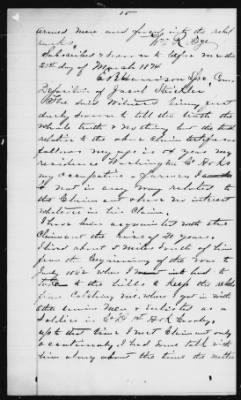 15
armed men and forced into the rebel
ranks. Wm R Dye
Subscribed & sworn to before me the
21st day of March 1874
Com.
Deposition of Jacob Strickler
The said Witness being first
duly sworn to tell the truth the
whole truth & nothing but the truth
relative to the above claim testifies as
follows my age is years my
residence Washington Co.
my occupation a farmer I am
not in any way related to
the Claimant & have no interest
whatever in his Claim.
I have been acquainted with the
Claimant for twenty years.
I lived about 2 miles South of him
from the Beginning of the war to
July 1862 when I had to
take to the hills to keep the rebels
from Catching me. where I got in with
other union men & enlisted as a
Soldier in
up to that time I met Claimant only
occationaly, I had some talk with
him along about the time the